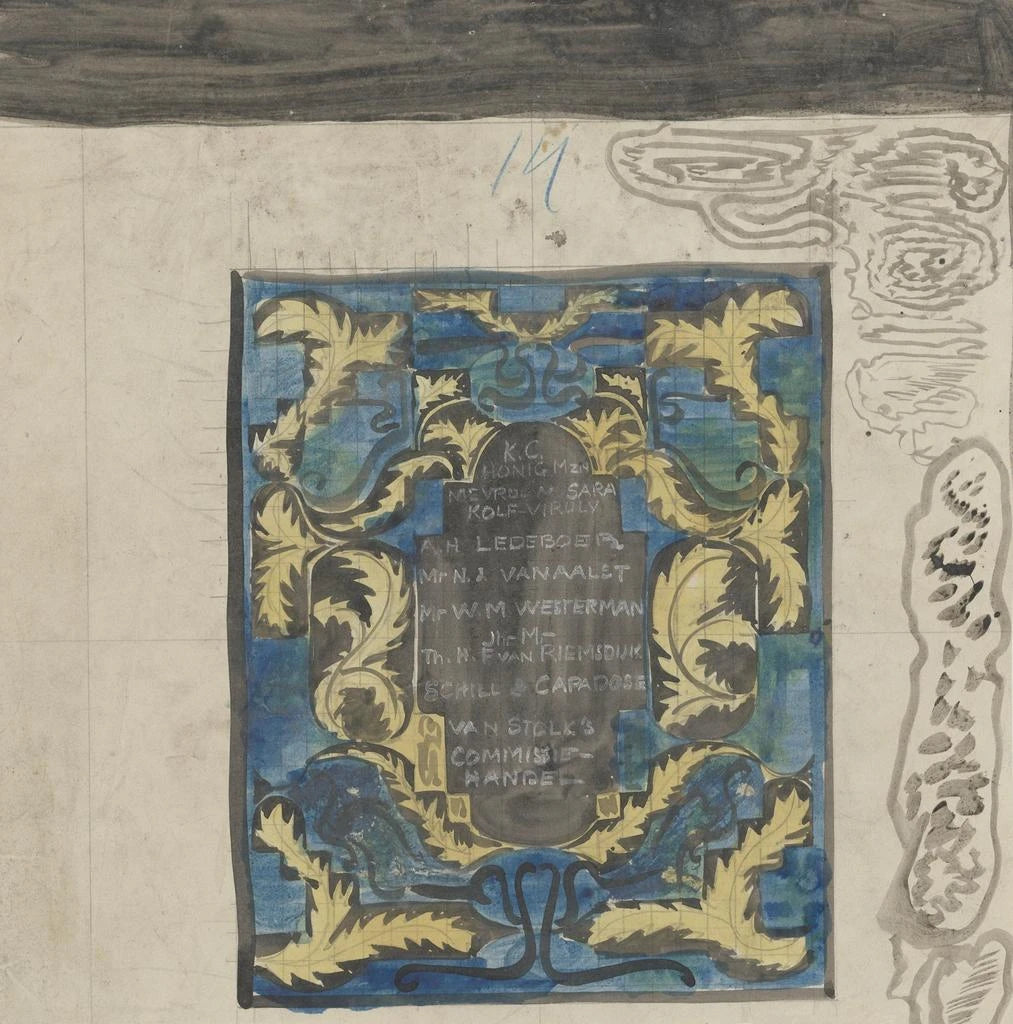 14
K.C.
HONIG Mzn
MEVROUW SARA
KOLF-VIRULY
A.H LEDEBOER
Mr N.J VAN AALST
Mr W.M. WESTERMAN
Jhr Mr
Th. H. F VAN RIEMSDIJK
SCHILL & CAPADOSE
VAN STOLK'S
COMMISIE-
HANDEL